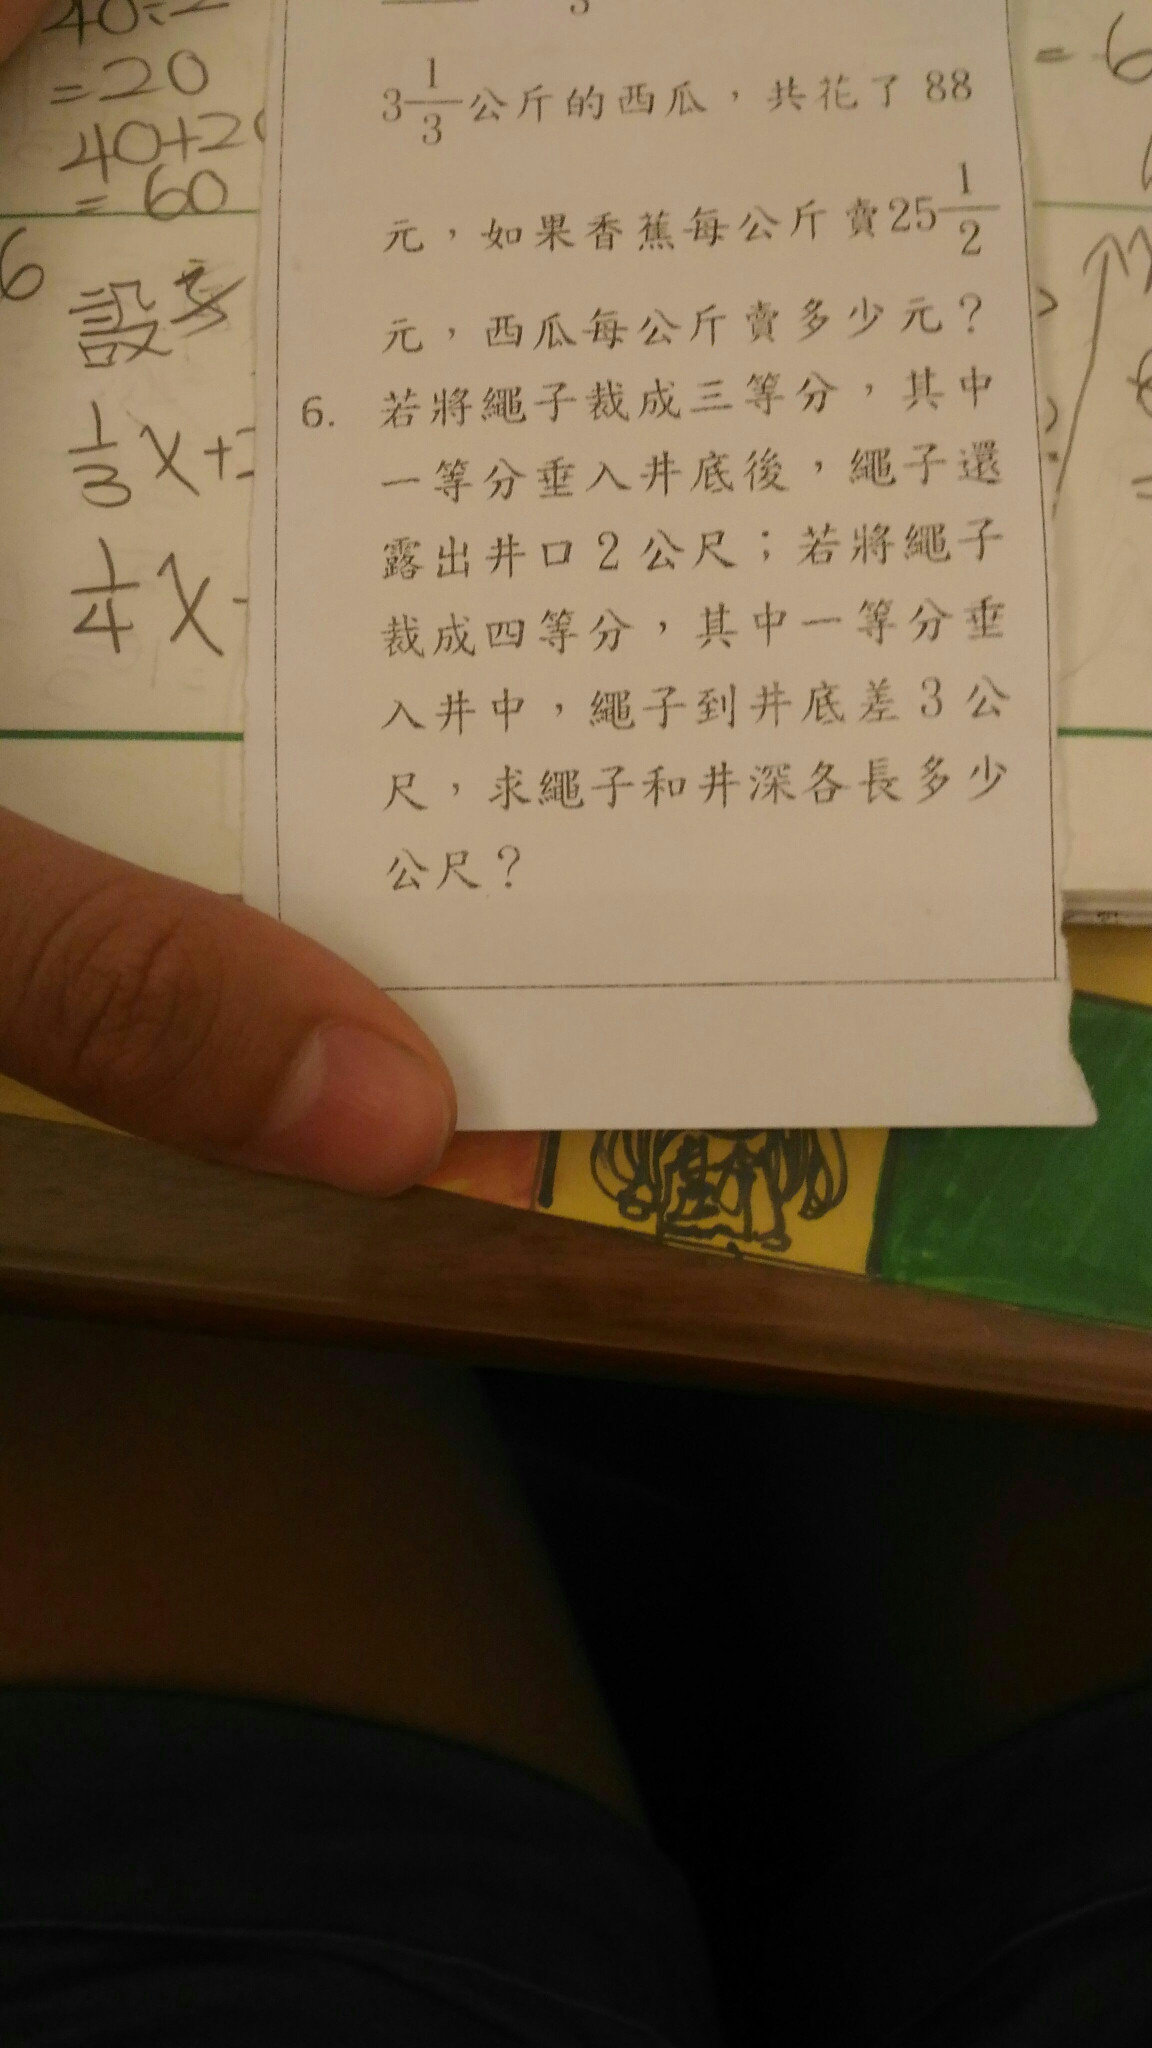 40÷2
=20
40+20
= 60
6
設
1/3 X+2
1/4 X-
3
3 1/3 公斤的西瓜，共花了 88
元，如果香蕉每公斤賣25 1/2
元，西瓜每公斤賣多少元？
6. 若將繩子裁成三等分，其中
一等分垂入井底後，繩子還
露出井口 2 公尺；若將繩子
裁成四等分，其中一等分垂
入井中，繩子到井底差 3 公
尺，求繩子和井深各長多少
公尺？
= 6